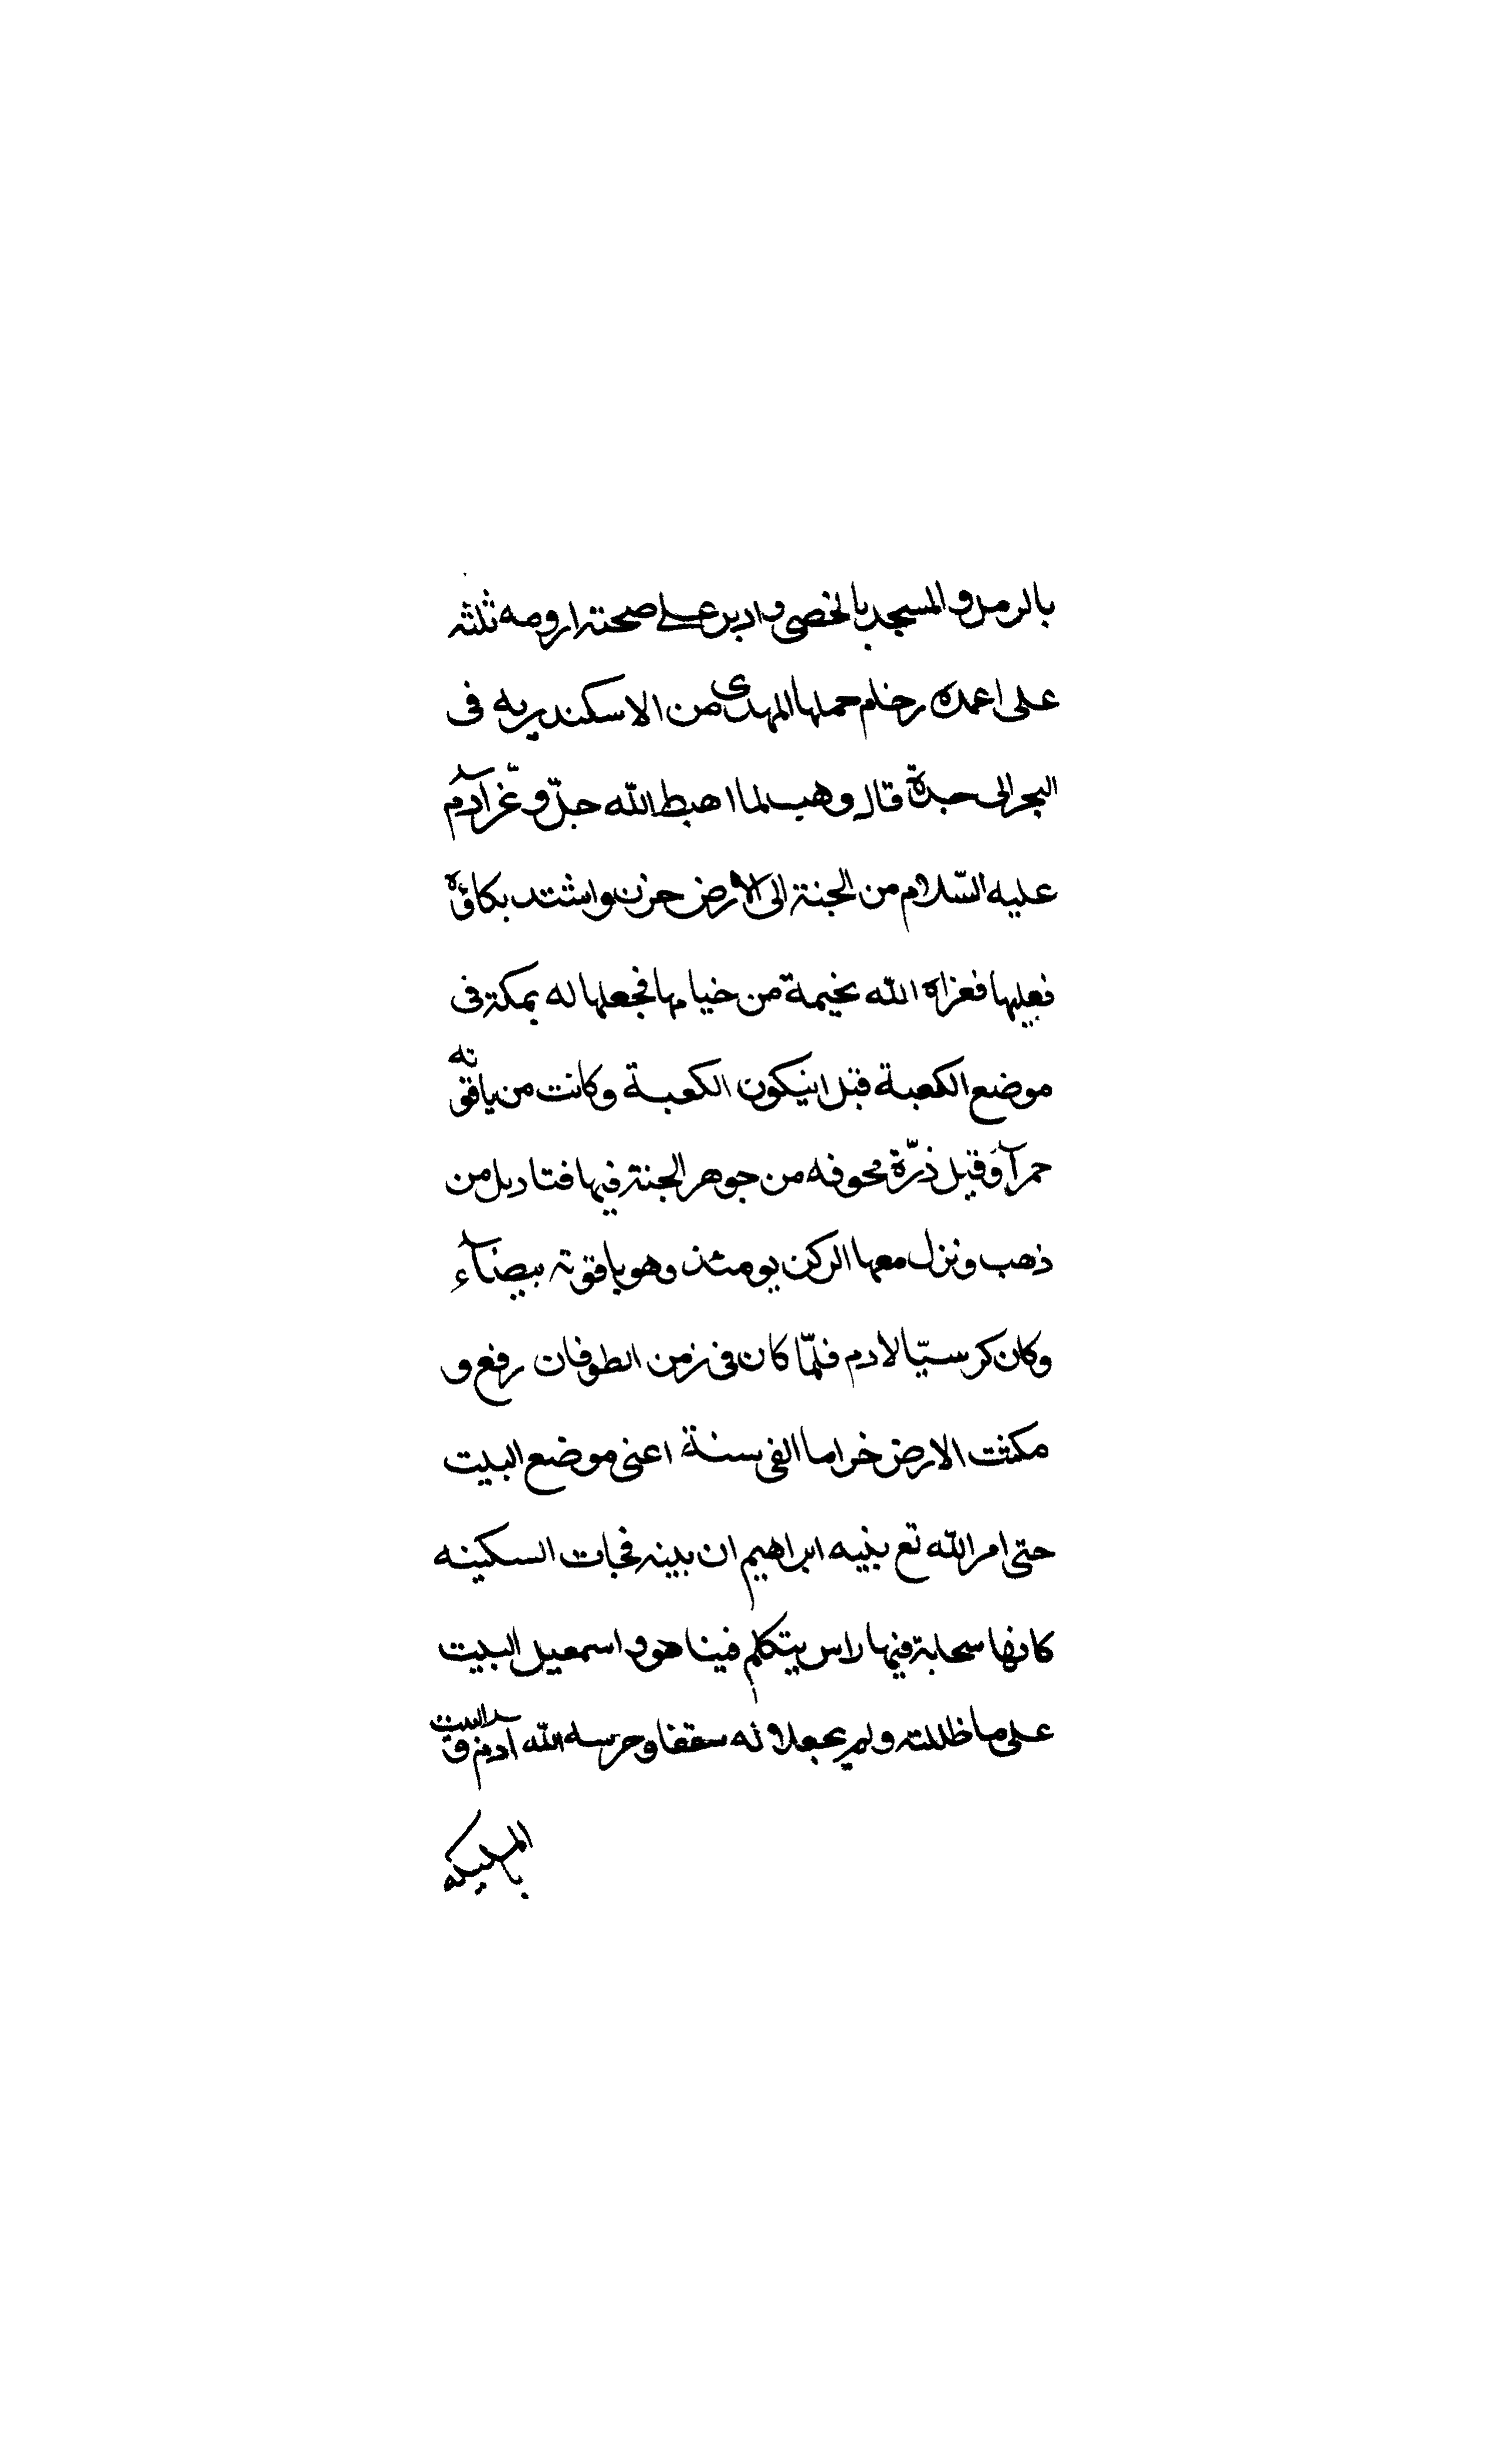 بالرمل والمسجد بالخصى وادير على صحنه اروقه ثلثه
على اعمدة رخام حملها المهدى من الاسكندريه فى
البحر الى جدة قال وهب لما اهبط الله جلّ وعّز آدم
عليه السّلام من الجنة الى الارض حزن واشتد بكاؤه
فعليها فعزاه الله بخيمة من خيامها فجعلها له بمكة فى
موضع الكعبة قبل ان يكون الكعبة وكانت من ياقوته
حمرآ وقيل ذرّة مجوفه من جوهر الجنة فيها قناديل من
ذهب ونزل معها الركن يومئذ وهو ياقوته بيضآء
وكان كرسيّا لادم فلمّا كان فى زمن الطوفان رفع و
مكثت الارض خرابا الفى سنة اعنى موضع البيت
حتى امر الله تع نبيه ابراهيم ان يبنيه فجات السكينه
كانها سحابة فيها راس يتكلم فبنا هو واسمعيل البيت
على ما ظللته ولم يجعلا له سقفا وحرسه الله ادم والبيت
بالمليكه